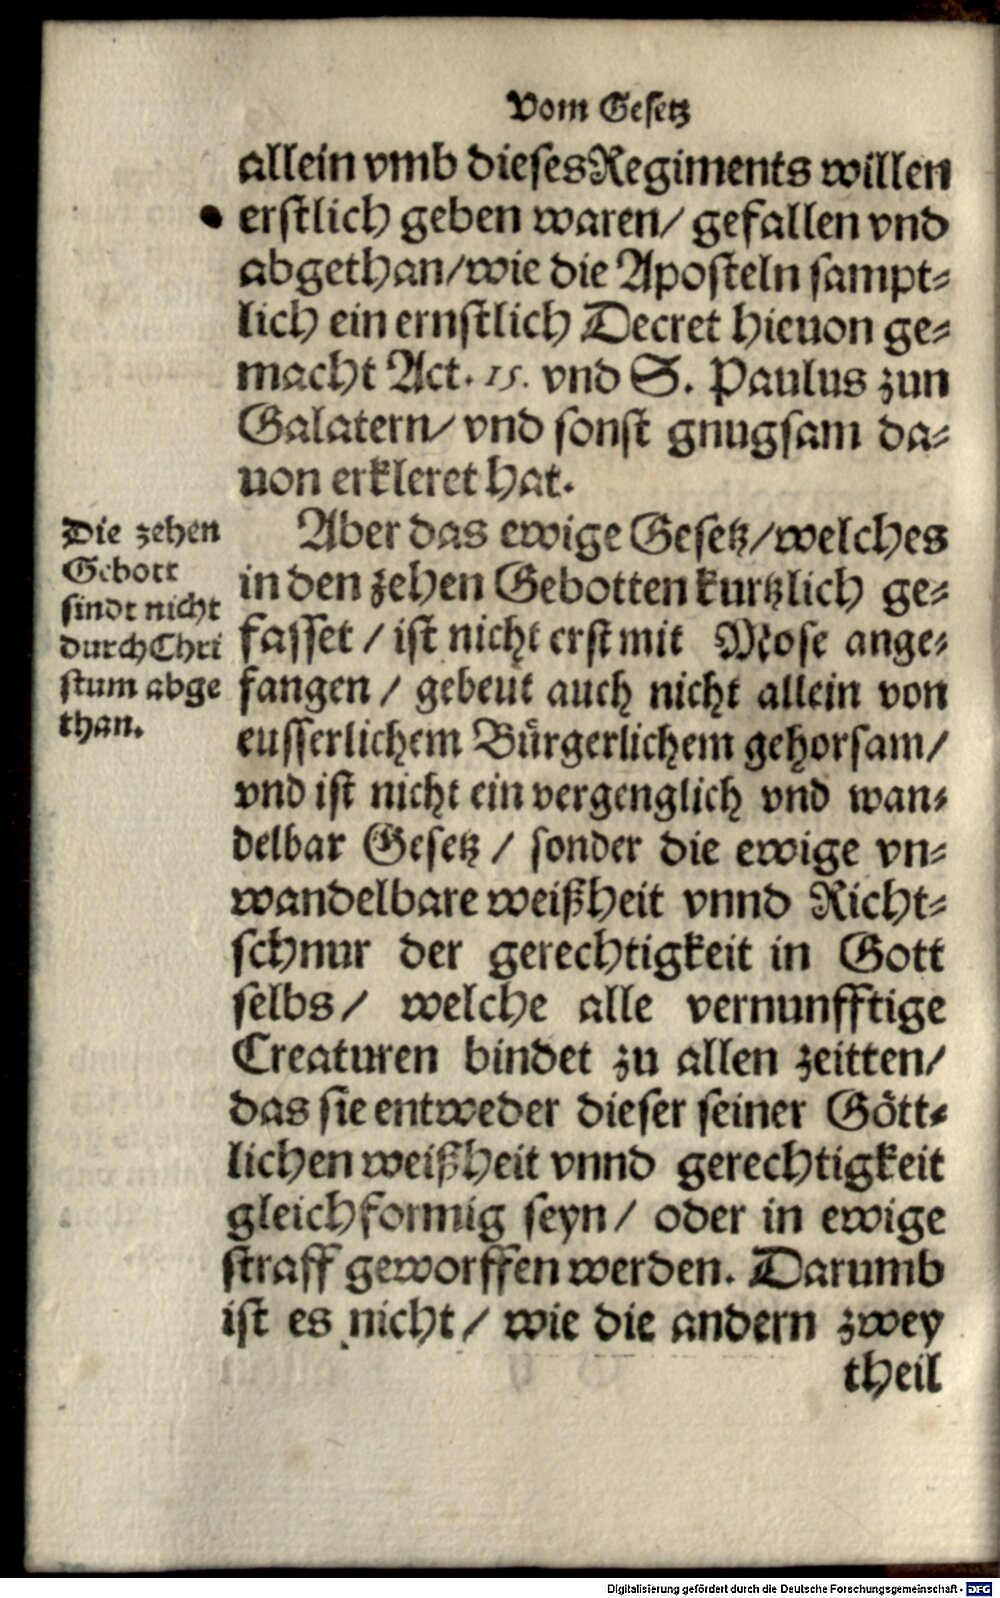 Vom Gesetz
allein vmb dieses Regiments willen
erstlich geben waren/ gefallen vnd
abgethan/wie die Aposteln sampt⸗
lich ein ernstlich Decret hieuon ge⸗
macht Act. 15. vnd S. Paulus zun
Galatern/ vnd sonst gnugsam da⸗
uon erkleret hat.
Die zehen
Gebott
sindt nicht
durch Chri
stum abge
than.
Aber das ewige Gesetz/welches
in den zehen Gebotten kurtzlich ge⸗
fasset / ist nicht erst mit Mose ange⸗
fangen / gebeut auch nicht allein von
eusserlichem Bürgerlichem gehorsam/
vnd ist nicht ein vergenglich vnd wan⸗
delbar Gesetz / sonder die ewige vn⸗
wandelbare weißheit vnnd Richt⸗
schnur der gerechtigkeit in Gott
selbs/ welche alle vernunfftige
Creaturen bindet zu allen zeitten/
das sie entweder dieser seiner Gött⸗
lichen weißheit vnnd gerechtigkeit
gleichformig seyn/ oder in ewige
straff geworffen werden. Darumb
ist es nicht/ wie die andern zwey
theil
Digitalisierung gefördert durch die Deutsche Forschungsgemeinschaft - DFG